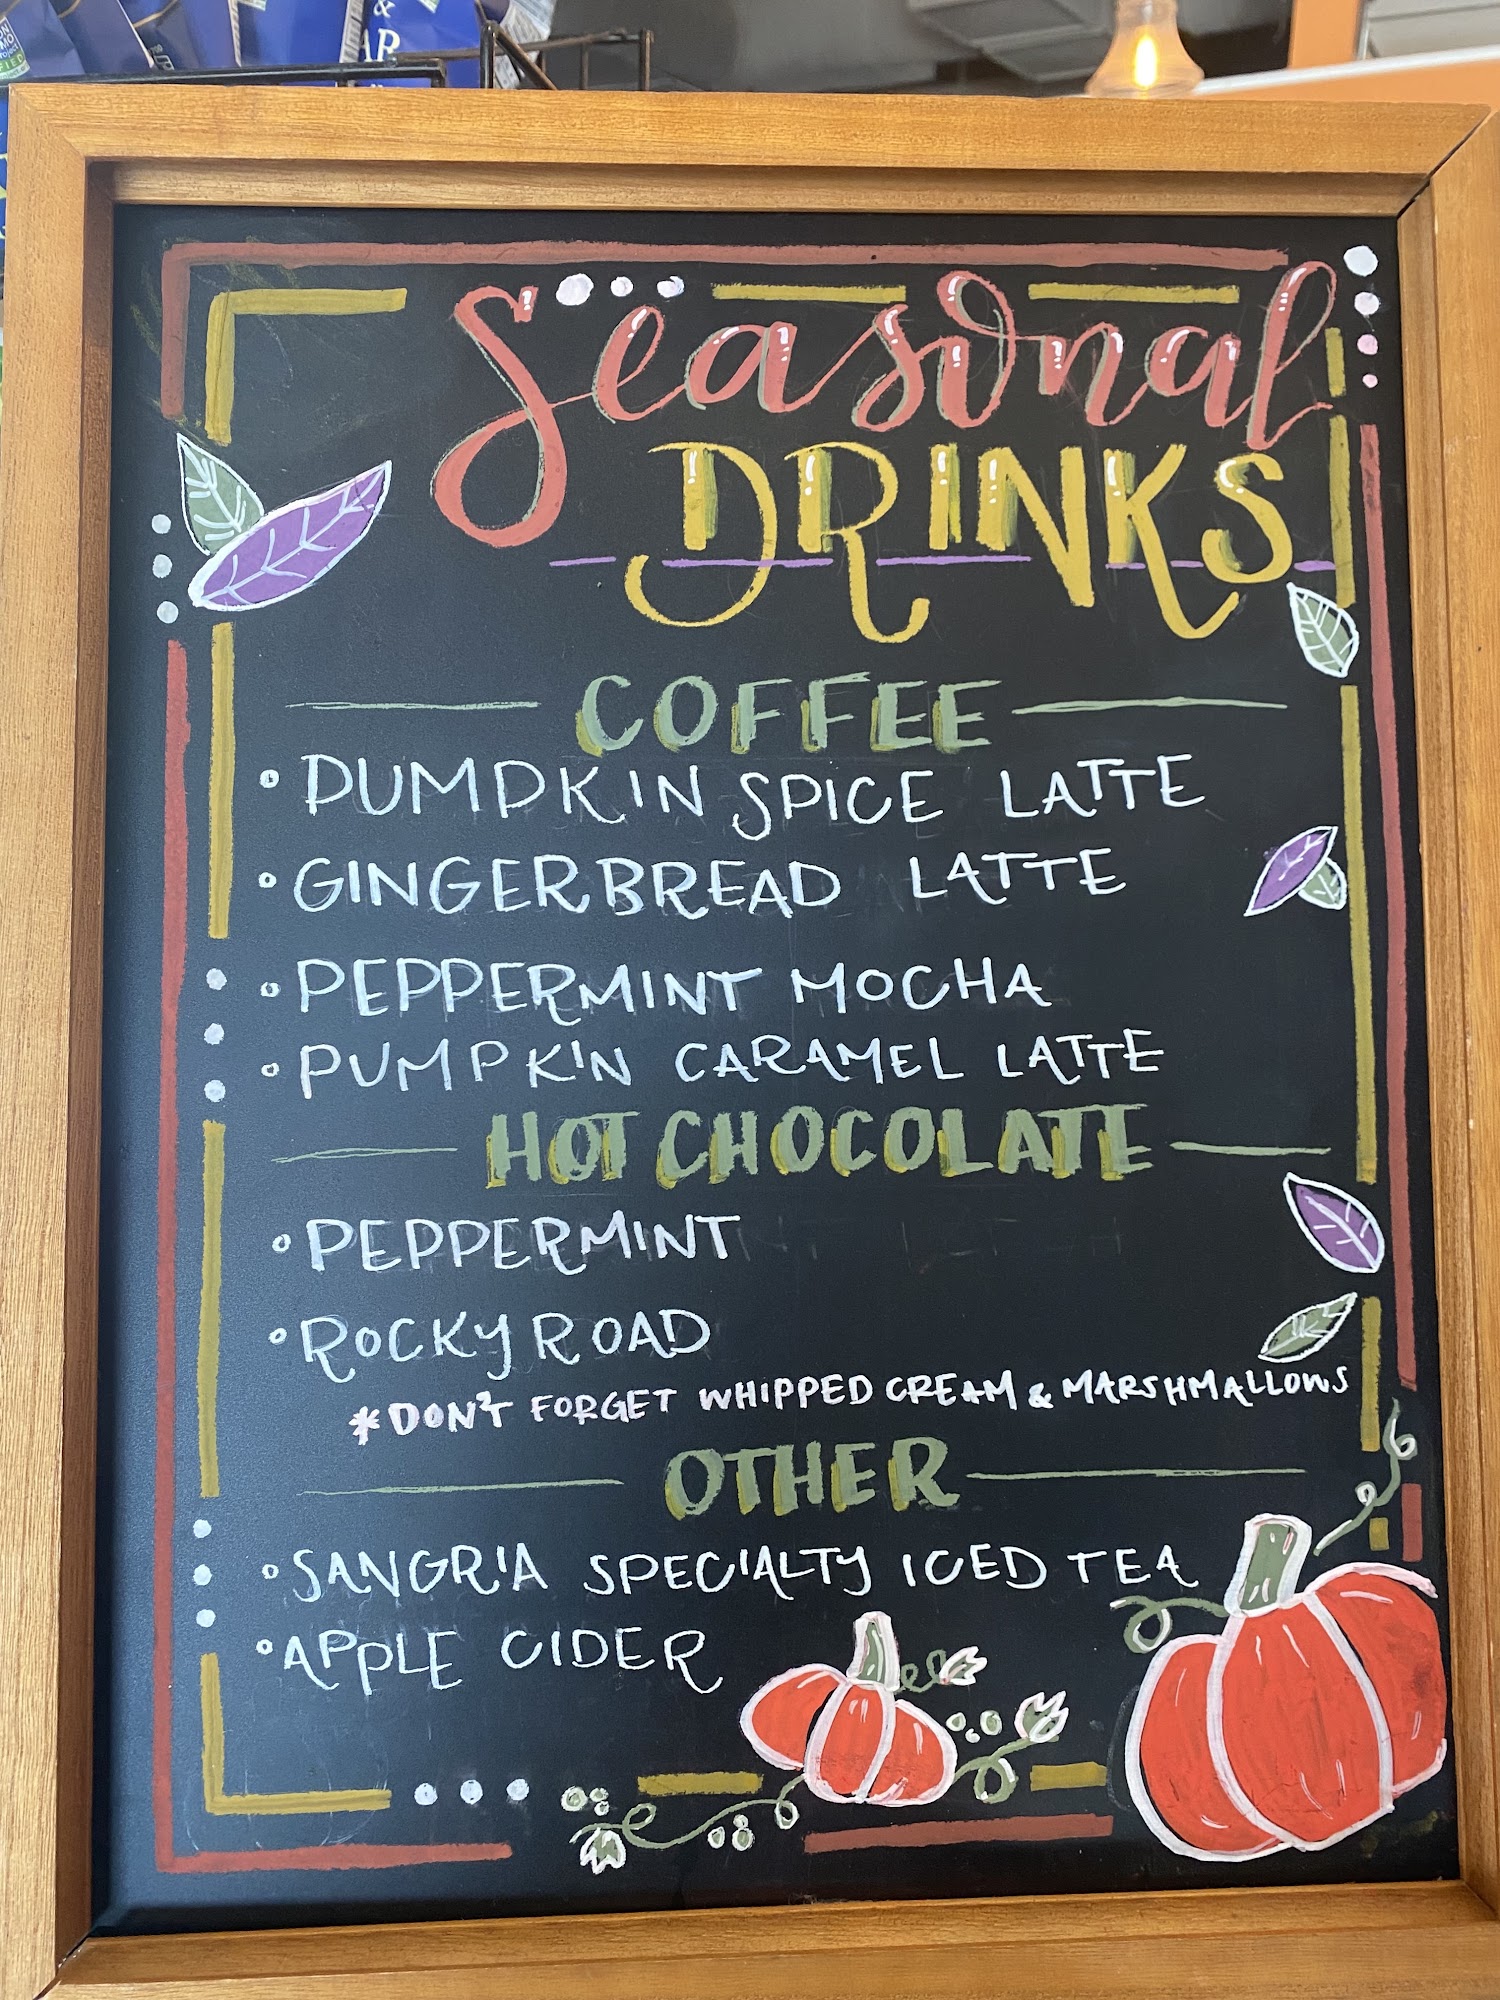 & AR
Seasonal
DRINKS
COFFEE
• PUMPKIN SPICE LATTE
• GINGERBREAD LATTE
• PEPPERMINT MOCHA
• PUMPKIN CARAMEL LATTE
HOT CHOCOLATE
• PEPPERMINT
• ROCKY ROAD
*DON'T FORGET WHIPPED CREAM & MARSHMALLOWS
OTHER
• SANGRIA SPECIALTY ICED TEA
• APPLE CIDER